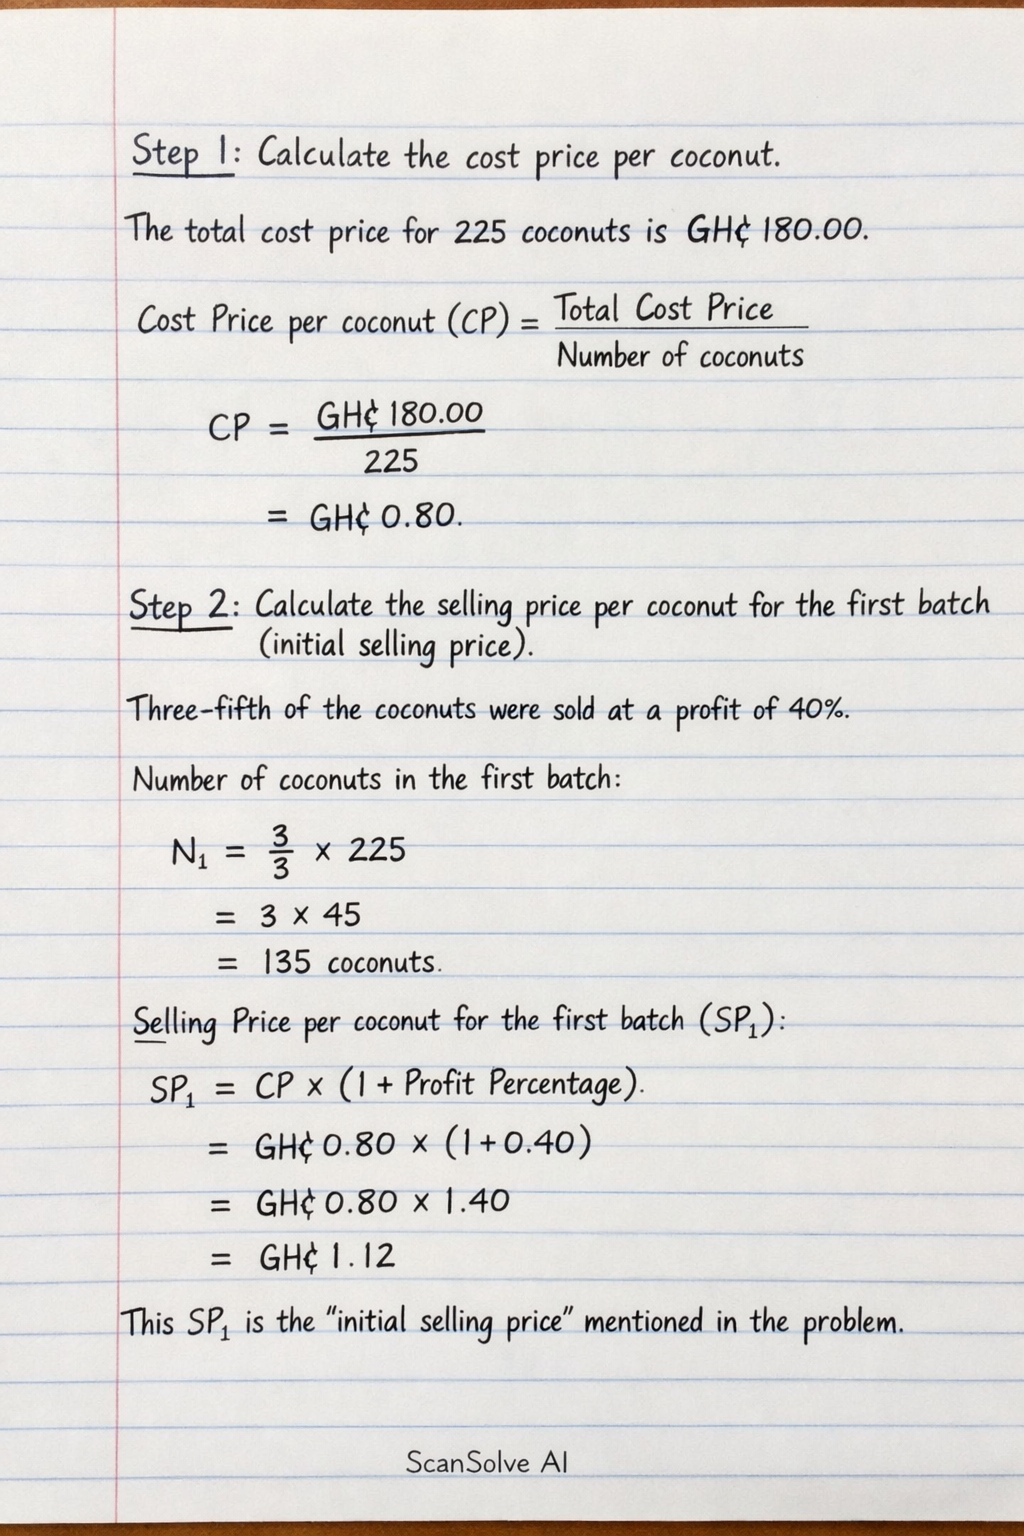 Step 1: Calculate the cost price per coconut.
The total cost price for 225 coconuts is GH₵ 180.00.
Cost Price per coconut (CP) = Total Cost Price
Number of coconuts
CP = GH₵ 180.00
225
= GH₵ 0.80.
Step 2: Calculate the selling price per coconut for the first batch
(initial selling price).
Three-fifth of the coconuts were sold at a profit of 40%.
Number of coconuts in the first batch:
N₁ = 3/3 × 225
= 3 × 45
= 135 coconuts.
Selling Price per coconut for the first batch (SP₁):
SP₁ = CP × (1 + Profit Percentage).
= GH₵ 0.80 × (1+0.40)
= GH₵ 0.80 × 1.40
= GH₵ 1.12
This SP₁ is the "initial selling price" mentioned in the problem.
ScanSolve AI